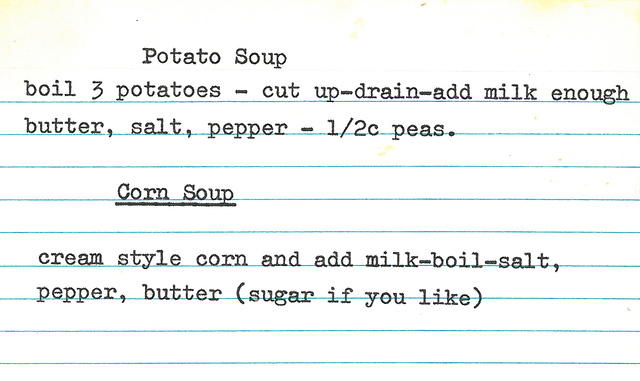 Potato Soup
boil 3 potatoes - cut up-drain-add milk enough
butter, salt, pepper - 1/2c peas.
Corn Soup
cream style corn and add milk-boil-salt,
pepper, butter (sugar if you like)